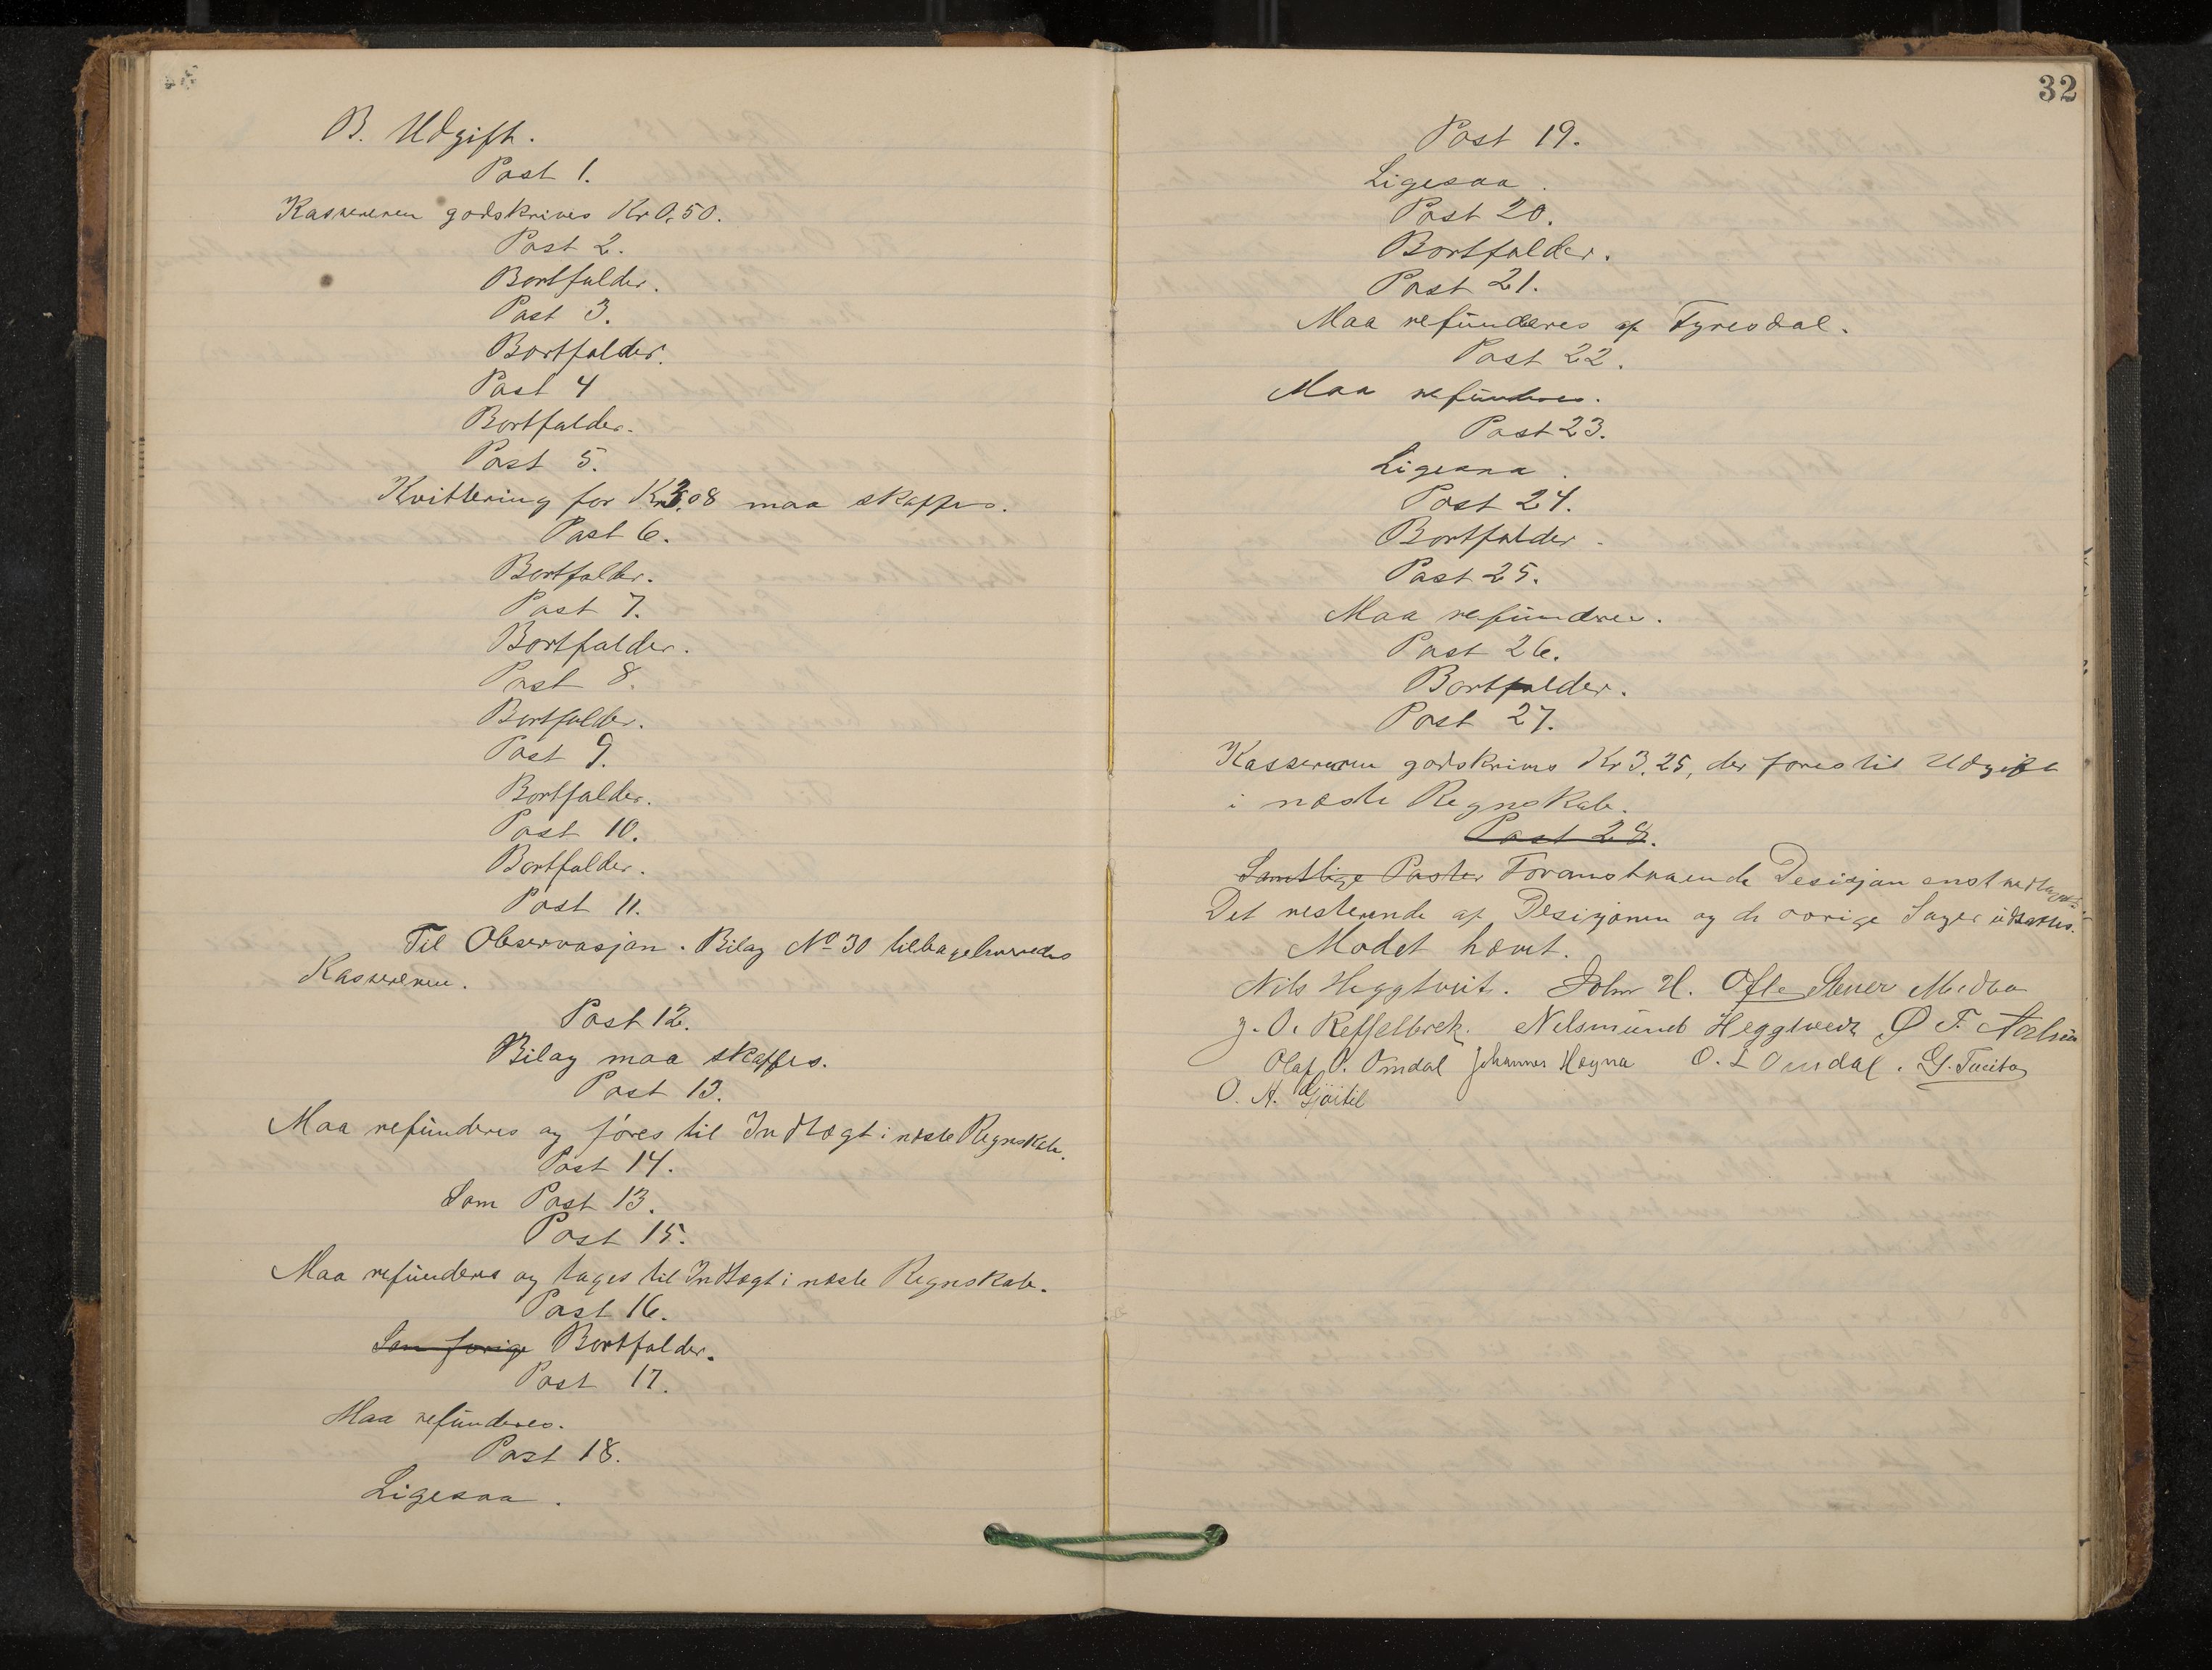 B. Udgift.
Post 1.
Kassereren godskrives Kr 0,50.
Post 2.
Bortfalder.
Post 3.
Bortfalder.
Post 4
Bortfalder.
Post 5.
Kvittering for Kr 3,08 maa skaffes.
Post 6.
Bortfalder.
Post 7.
Bortfalder.
Post 8.
Bortfalder.
Post 9.
Bortfalder.
Post 10.
Bortfalder.
Post 11.
Til Observasjon. Bilag No 30 tilbageleveredes
Kassereren.
Post 12.
Bilag maa skaffes.
Post 13.
Maa refunderes og føres til Indtægt i næste Regnskab.
Post 14.
Som Post 13.
Post 15.
Maa refunderes og tages til Indtægt i næste Regnskab.
Post 16.
Som forrige Bortfalder.
Post 17.
Maa refunderes.
Post 18.
Ligesaa.
32
Post 19.
Ligesaa.
Post 20.
Bortfalder.
Post 21.
Maa refunderes af Fyresdal.
Post 22.
Maa refunderes.
Post 23.
Ligesaa.
Post 24.
Bortfalder.
Post 25.
Maa refunderes.
Post 26.
Bortfalder.
Post 27.
Kassereren godskrives Kr 3,25, der føres til Udgift
i næste Regnskab.
Post 28.
Samtlige Poster Foranstaaende Desisjon enst vedtaget
Det resterende af Desisjonen og de øvrige Sager udsattes.
Mødet hævt.
Nils Heggtveit. John H. Ofte Stener Midbø
O. Reffelbrek. Nelsmünd Heggtveit Ø T.
Olaf O. Omdal Johannes Høgna O. L Omdal. G. Tveito
O. A. Gjøitil